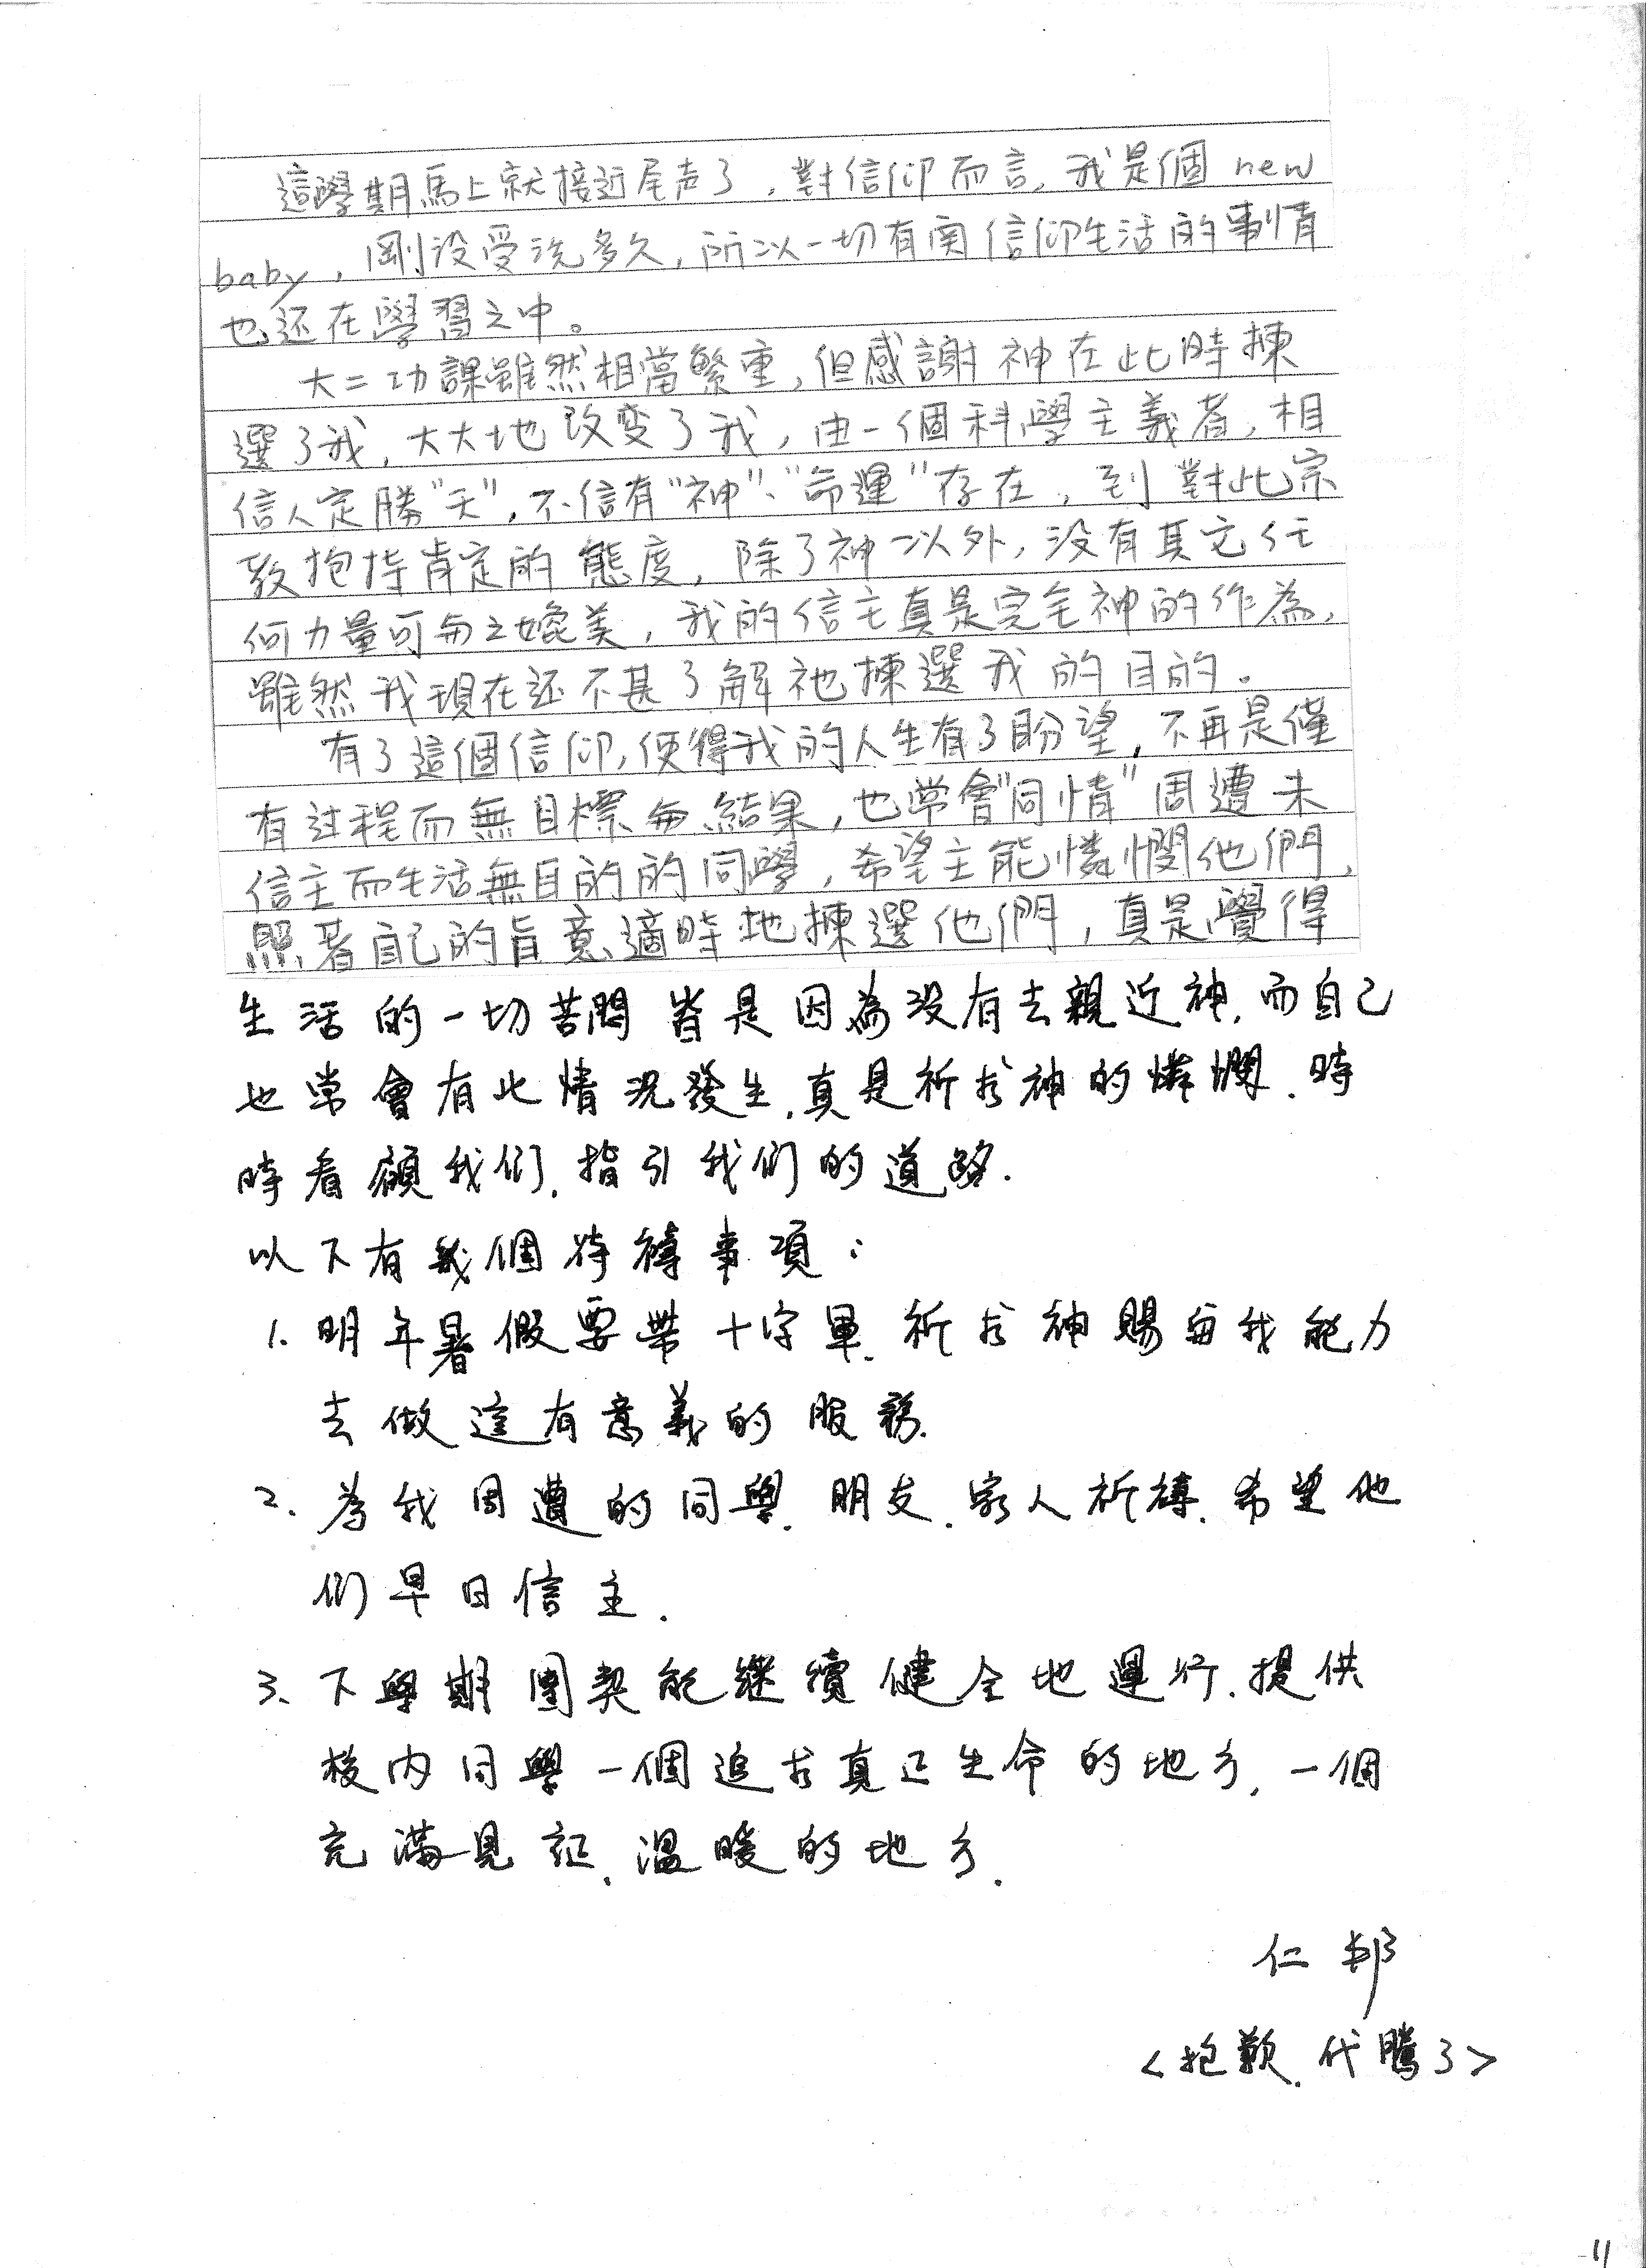 這學期馬上就接近尾声了，對信仰而言，我是個 new
baby，剛没受洗多久，所以一切有関信仰生活的事情
也还在學習之中。
大二功課雖然相當繁重，但感謝神在此時揀
選了我，大大地改变了我，由一個科學主義者，相
信人定勝"天"，不信有"神"、"命運"存在，到對此宗
教抱持肯定的態度，除了神以外，没有其它任
何力量可與之媲美，我的信主真是完全神的作為，
雖然我現在还不甚了解祂揀選我的目的。
有了這個信仰，使得我的人生有了盼望，不再是僅
有过程而無目標與結果，也常會"同情"周遭未
信主而生活無目的的同學，希望主能憐憫他們，
照著自己的旨意適時地揀選他們，真是覺得
生活的一切苦悶皆是因為没有去親近神，而自己
也常會有此情況發生，真是祈求神的憐憫，時
時看顧我们，指引我们的道路．
以下有幾個待禱事項：
1. 明年暑假要帶十字軍，祈求神賜與我能力
去做這有意義的服務．
2、為我周遭的同學、朋友、家人祈禱，希望他
们早日信主．
3、下學期團契能繼續健全地運行，提供
校内同學一個追求真正生命的地方，一個
充滿見証、溫暖的地方．
仁邦
<抱歉，代騰了>
11